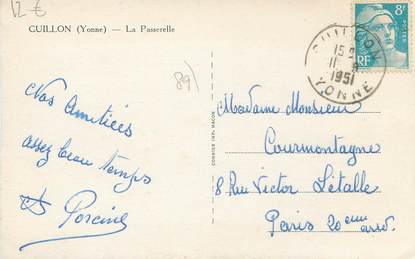 12 €
GUILLON (Yonne) — La Passerelle
89)
Nos Amitiés
assez beau temps
Porcine
COURRIER IMP. MACON
GUILLON
15
11
1951
YONNE
8F
POSTES
RF
Madame Monsieur
Courmontagne
8 Rue Victor Létalle
Paris 20ème arrd.